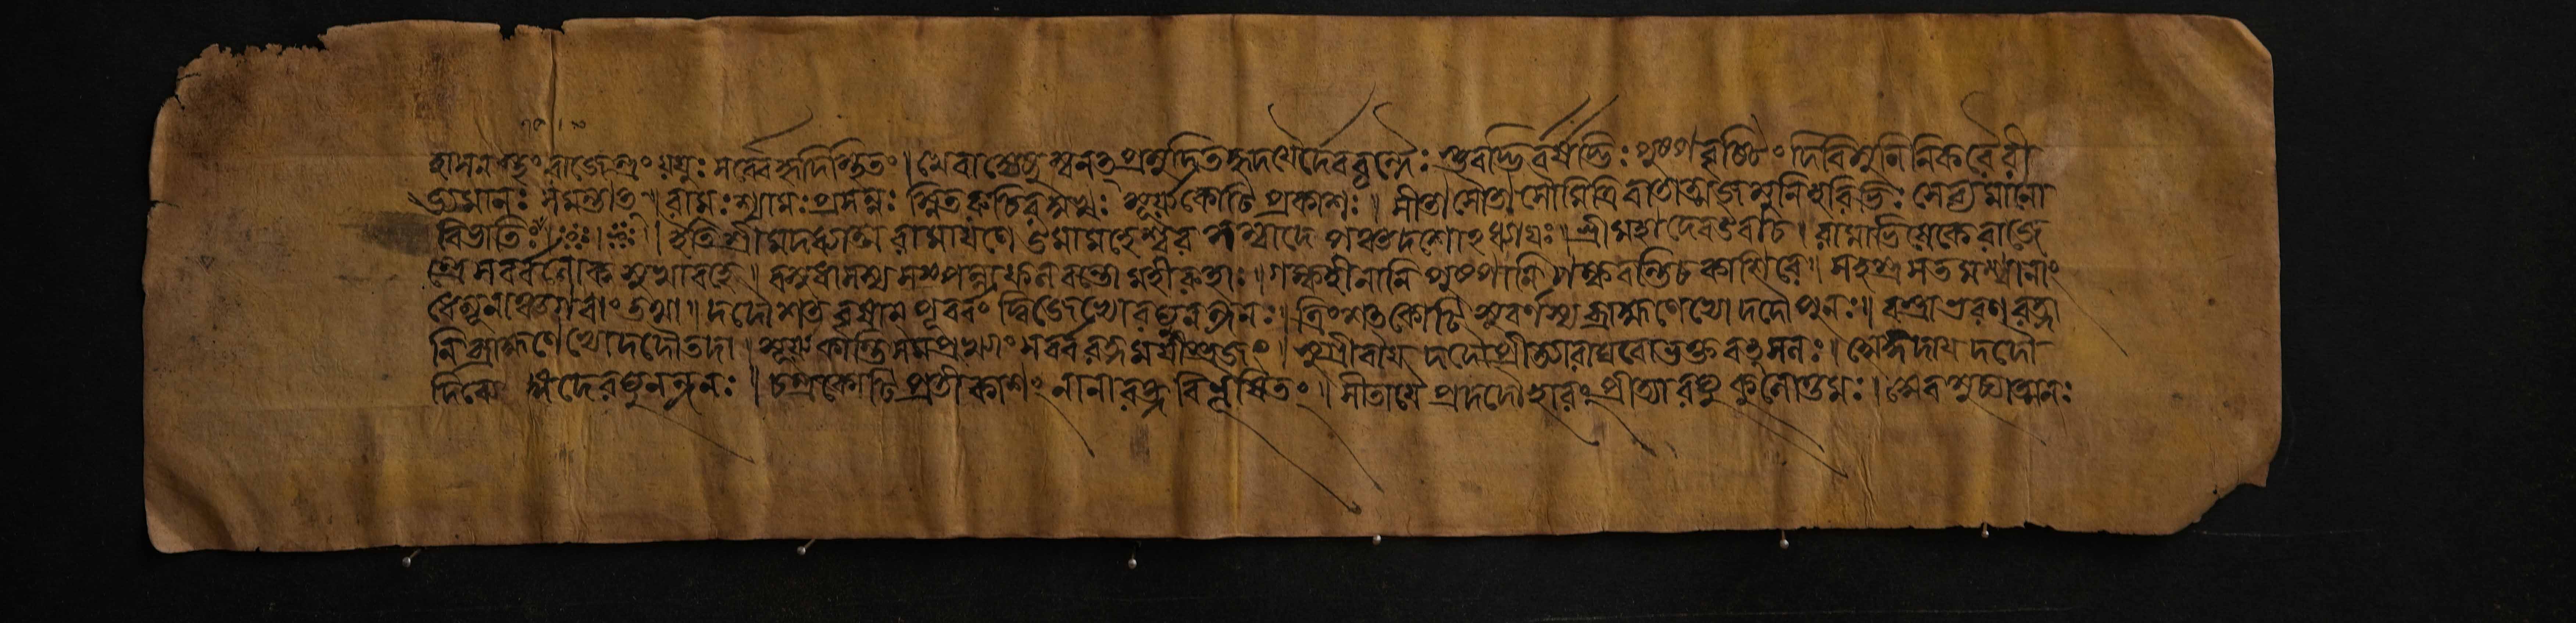 হাসনস্থং রাজেন্দ্রং যযুঃ সর্ব্বে হৃদিস্থিতং। খে বাদ্যেষু ধ্বনৎসু প্রমুদিতহৃদয়ৈর্দেববৃন্দৈঃ স্তুবদ্ভির্বর্ষদ্ভিঃ পুষ্পবৃষ্টিং দিবি মুনিনিকরৈরী
ড্যমানঃ সমন্তাৎ। রামঃ শ্যামঃ প্রসন্নঃ স্মিতরুচিরমুখঃ সূর্য্যকোটিপ্রকাশঃ। সীতাসৌমিত্রিবাতাত্মজমুনিহরিভিঃ সেব্যমানো
বিভাতি॥ ইতি শ্রীমদধ্যাত্মরামায়ণে উমামহেশ্বরসম্বাদে পঞ্চদশোঽধ্যায়ঃ॥ শ্রীমহাদেব উবাচ। রামাভিষেকে রাজে
ন্দ্রে সর্ব্বলোকসুখাবহে। বসুধা সস্যসম্পন্না ফলবন্তো মহীরুহাঃ। গন্ধহীনানি পুষ্পাণি গন্ধবন্তি চকাশিরে। সহস্রশতমশ্বানাং
ধেনূনাঞ্চ গবাং তথা। দদৌ শতবৃষান্ পূর্ব্বং দ্বিজেভ্যো রঘুনন্দনঃ। ত্রিংশতকোটি সুবর্ণস্য ব্রাহ্মণেভ্যো দদৌ পুনঃ। বস্ত্রাভরণরত্না
নি ব্রাহ্মণেভ্যো দদৌ তদা। সূর্য্যকান্তিসমপ্রখ্যাং সর্ব্বরত্নময়ীং স্রজং। সুগ্রীবায় দদৌ প্রীত্যা রাঘবো ভক্তবৎসলঃ। অঙ্গদায় দদৌ
দিব্যে অঙ্গদে রঘুনন্দনঃ। চন্দ্রকোটিপ্রতীকাশং নানারত্নবিভূষিতং। সীতায়ৈ প্রদদৌ হারং প্রীত্যা রঘুকুলোত্তমঃ। অবমুচ্যাত্মনঃ